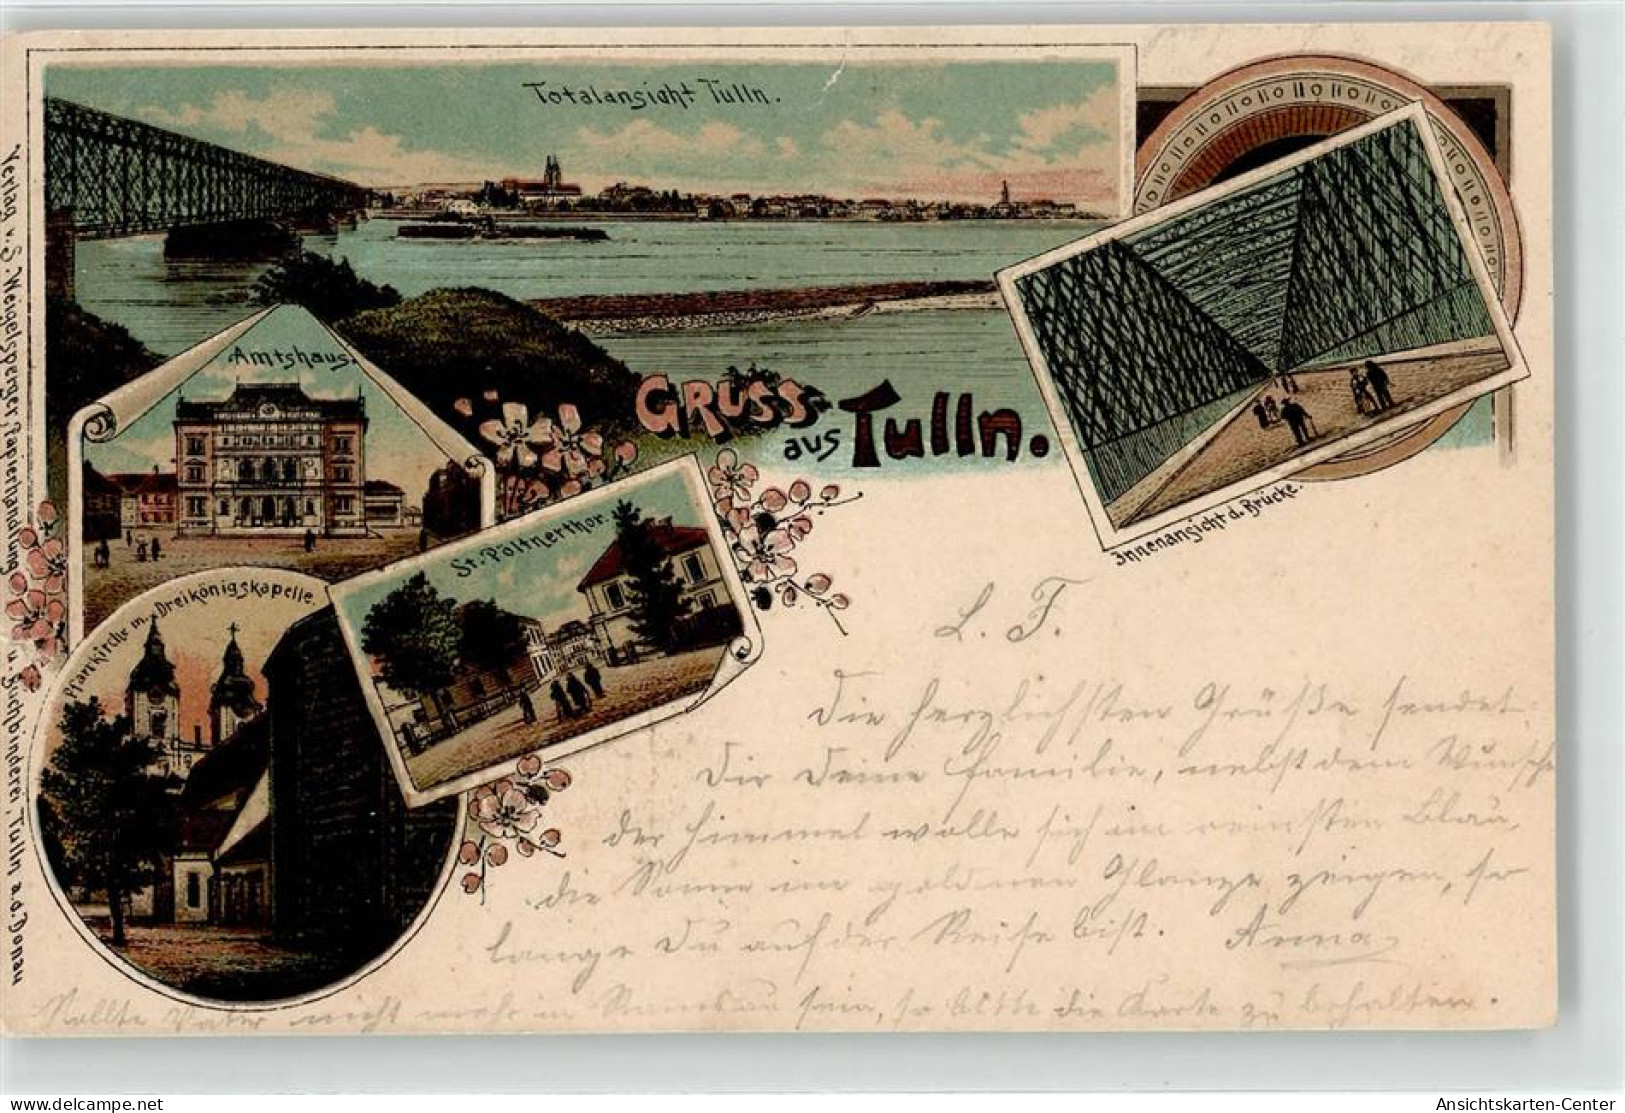 Totalansicht Tulln.
Amtshaus.
GRUSS
aus Tulln.
St. Pöltnerthor.
Innenansicht d. Brücke.
Pfarrkirche m. Dreikönigskapelle.
Verlag v. S. Weigelsperger, Papierhandlung u. Buchbinderei, Tulln a. d. Donau
L. F.
Die herzlichsten Grüße sendet
Dir Deine Familie, nebst dem Wunsche
der Himmel wolle sich im reinsten Blau,
die Sonne im goldenen Glanze zeigen, so
lange Du auf der Reise bist. Anna
Sollte Vater nicht mehr in sein, so bitte die Karte zu behalten.
delcampe.net
Ansichtskarten-Center